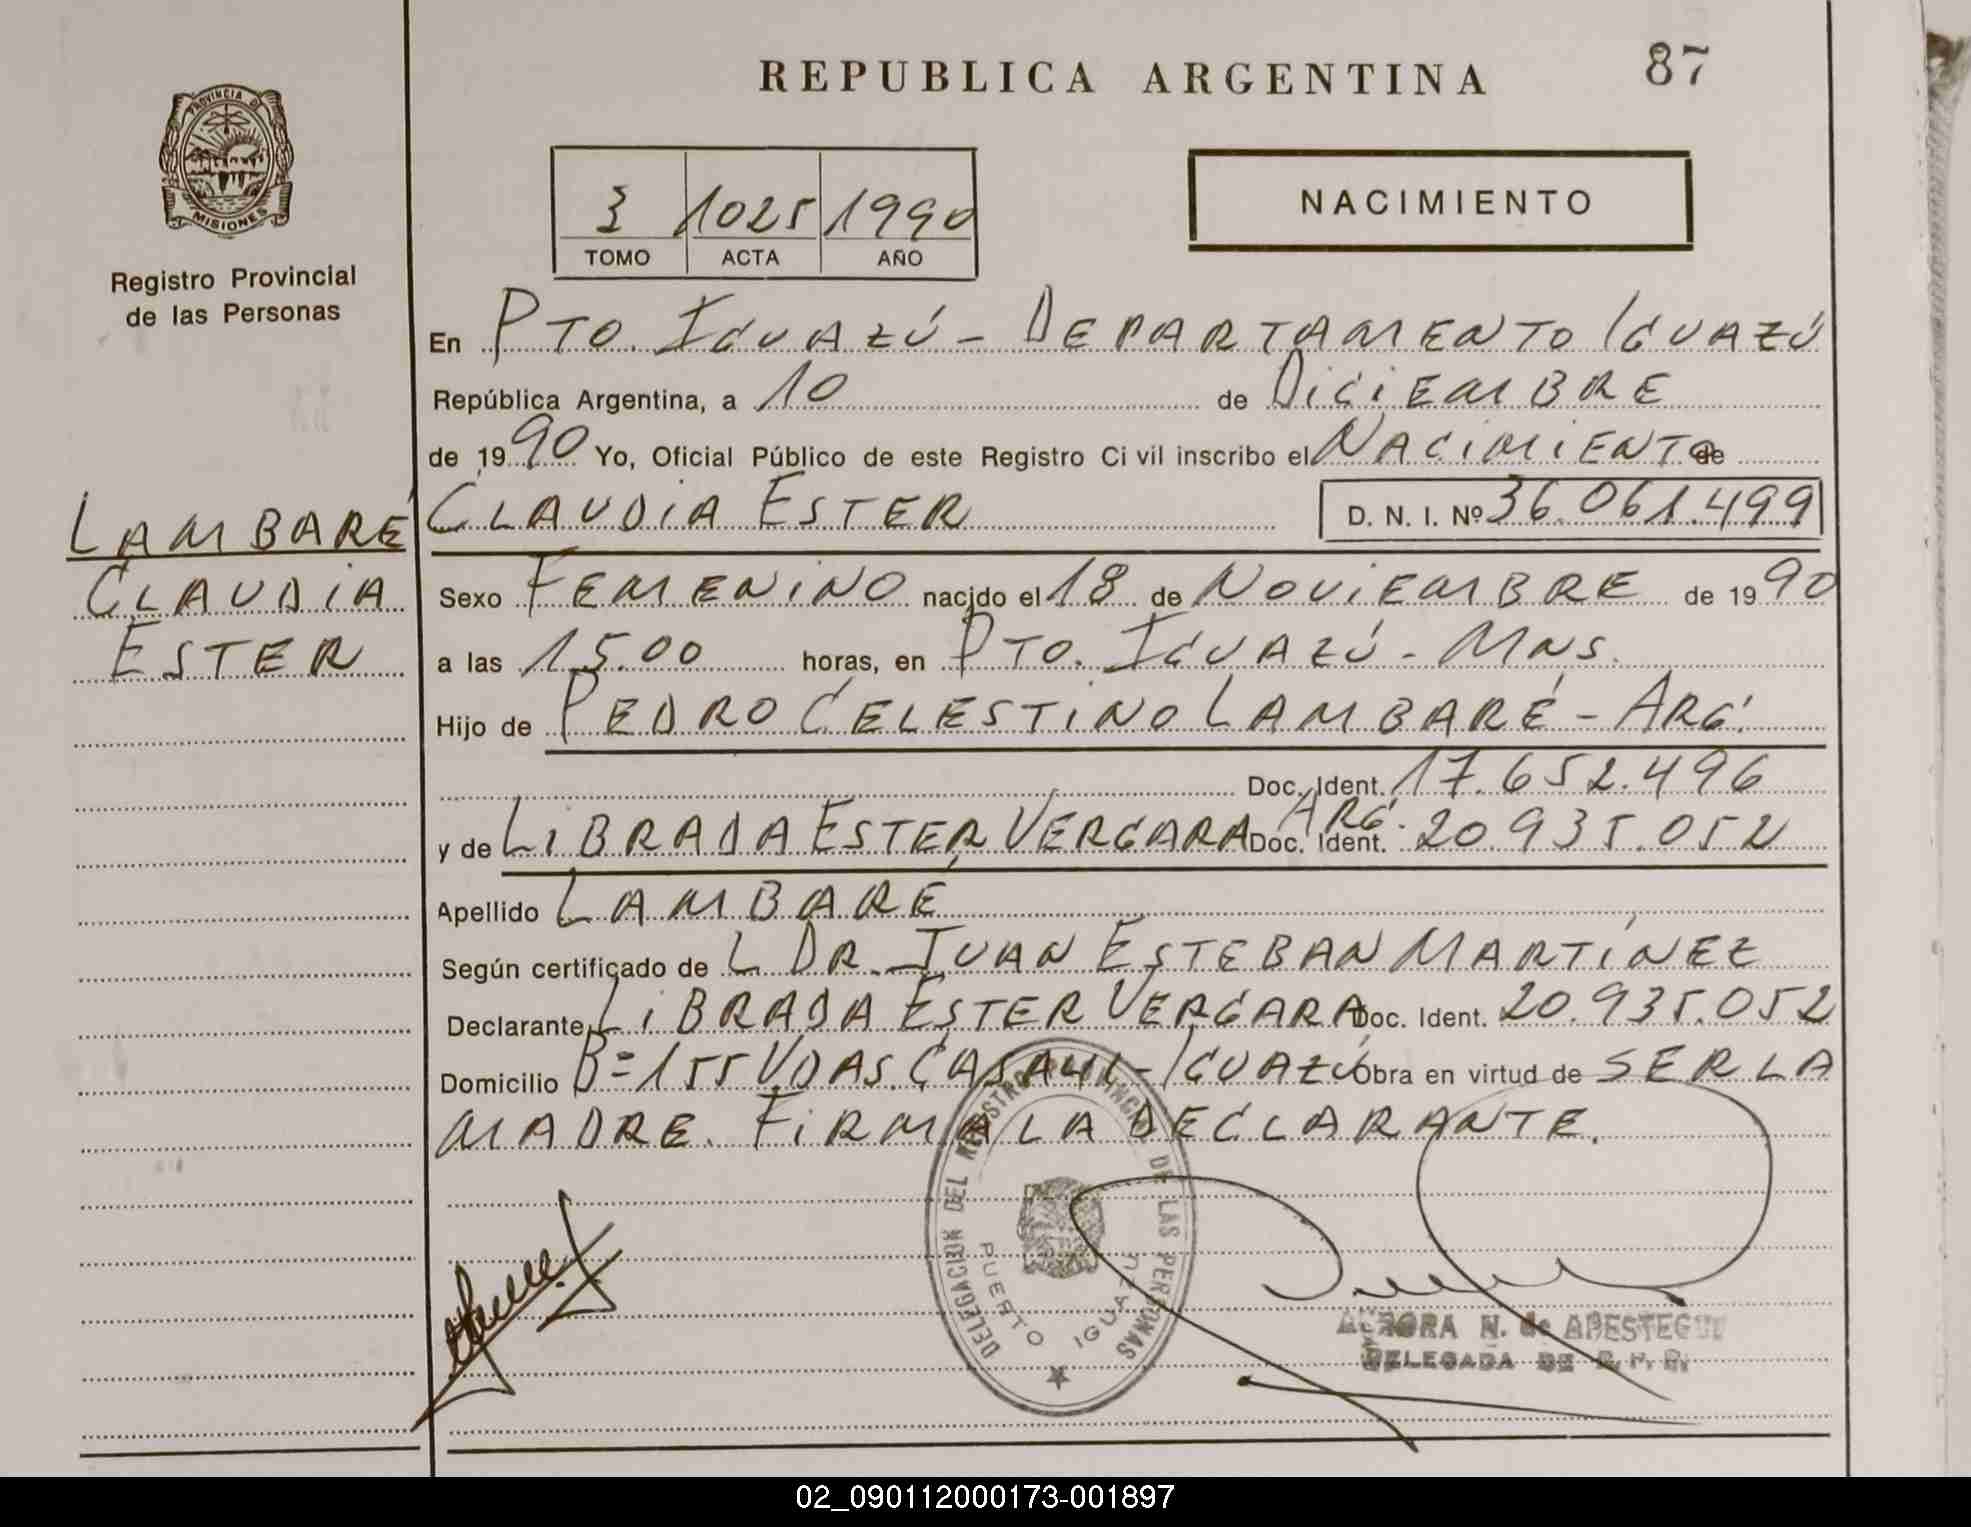 REPUBLICA ARGENTINA
87
PROVINCIA DE
MISIONES
Registro Provincial
de las Personas
3 1025 1990
TOMO ACTA AÑO
NACIMIENTO
En PTO. IGUAZÚ - DEPARTAMENTO IGUAZÚ
República Argentina, a 10 de DICIEMBRE
de 1990 Yo, Oficial Público de este Registro Ci vil inscribo el NACIMIENTO de
LAMBARÉ
CLAUDIA
ESTER
CLAUDIA ESTER D. N. I. Nº 36.061.499
Sexo FEMENINO nacido el 18 de NOVIEMBRE de 1990
a las 15.00 horas, en PTO. IGUAZÚ - MNS.
Hijo de PEDRO CELESTINO LAMBARÉ - ARG.
Doc. Ident. 17.652.496
y de LIBRADA ESTER VERGARA ARG. Doc. Ident. 20.935.052
Apellido LAMBARÉ
Según certificado de L DR. JUAN ESTEBAN MARTÍNEZ
Declarante LIBRADA ESTER VERGARA Doc. Ident. 20.935.052
Domicilio Bº 155 VDAS. IGUAZÚ Obra en virtud de SER LA
MADRE. FIRMA LA DECLARANTE.
DELEGACION DEL REGISTRO PROVINCIAL DE LAS PERSONAS
PUERTO IGUAZU
AURORA N. de APESTEGUI
DELEGADA DE R. P. P.
02_090112000173-001897